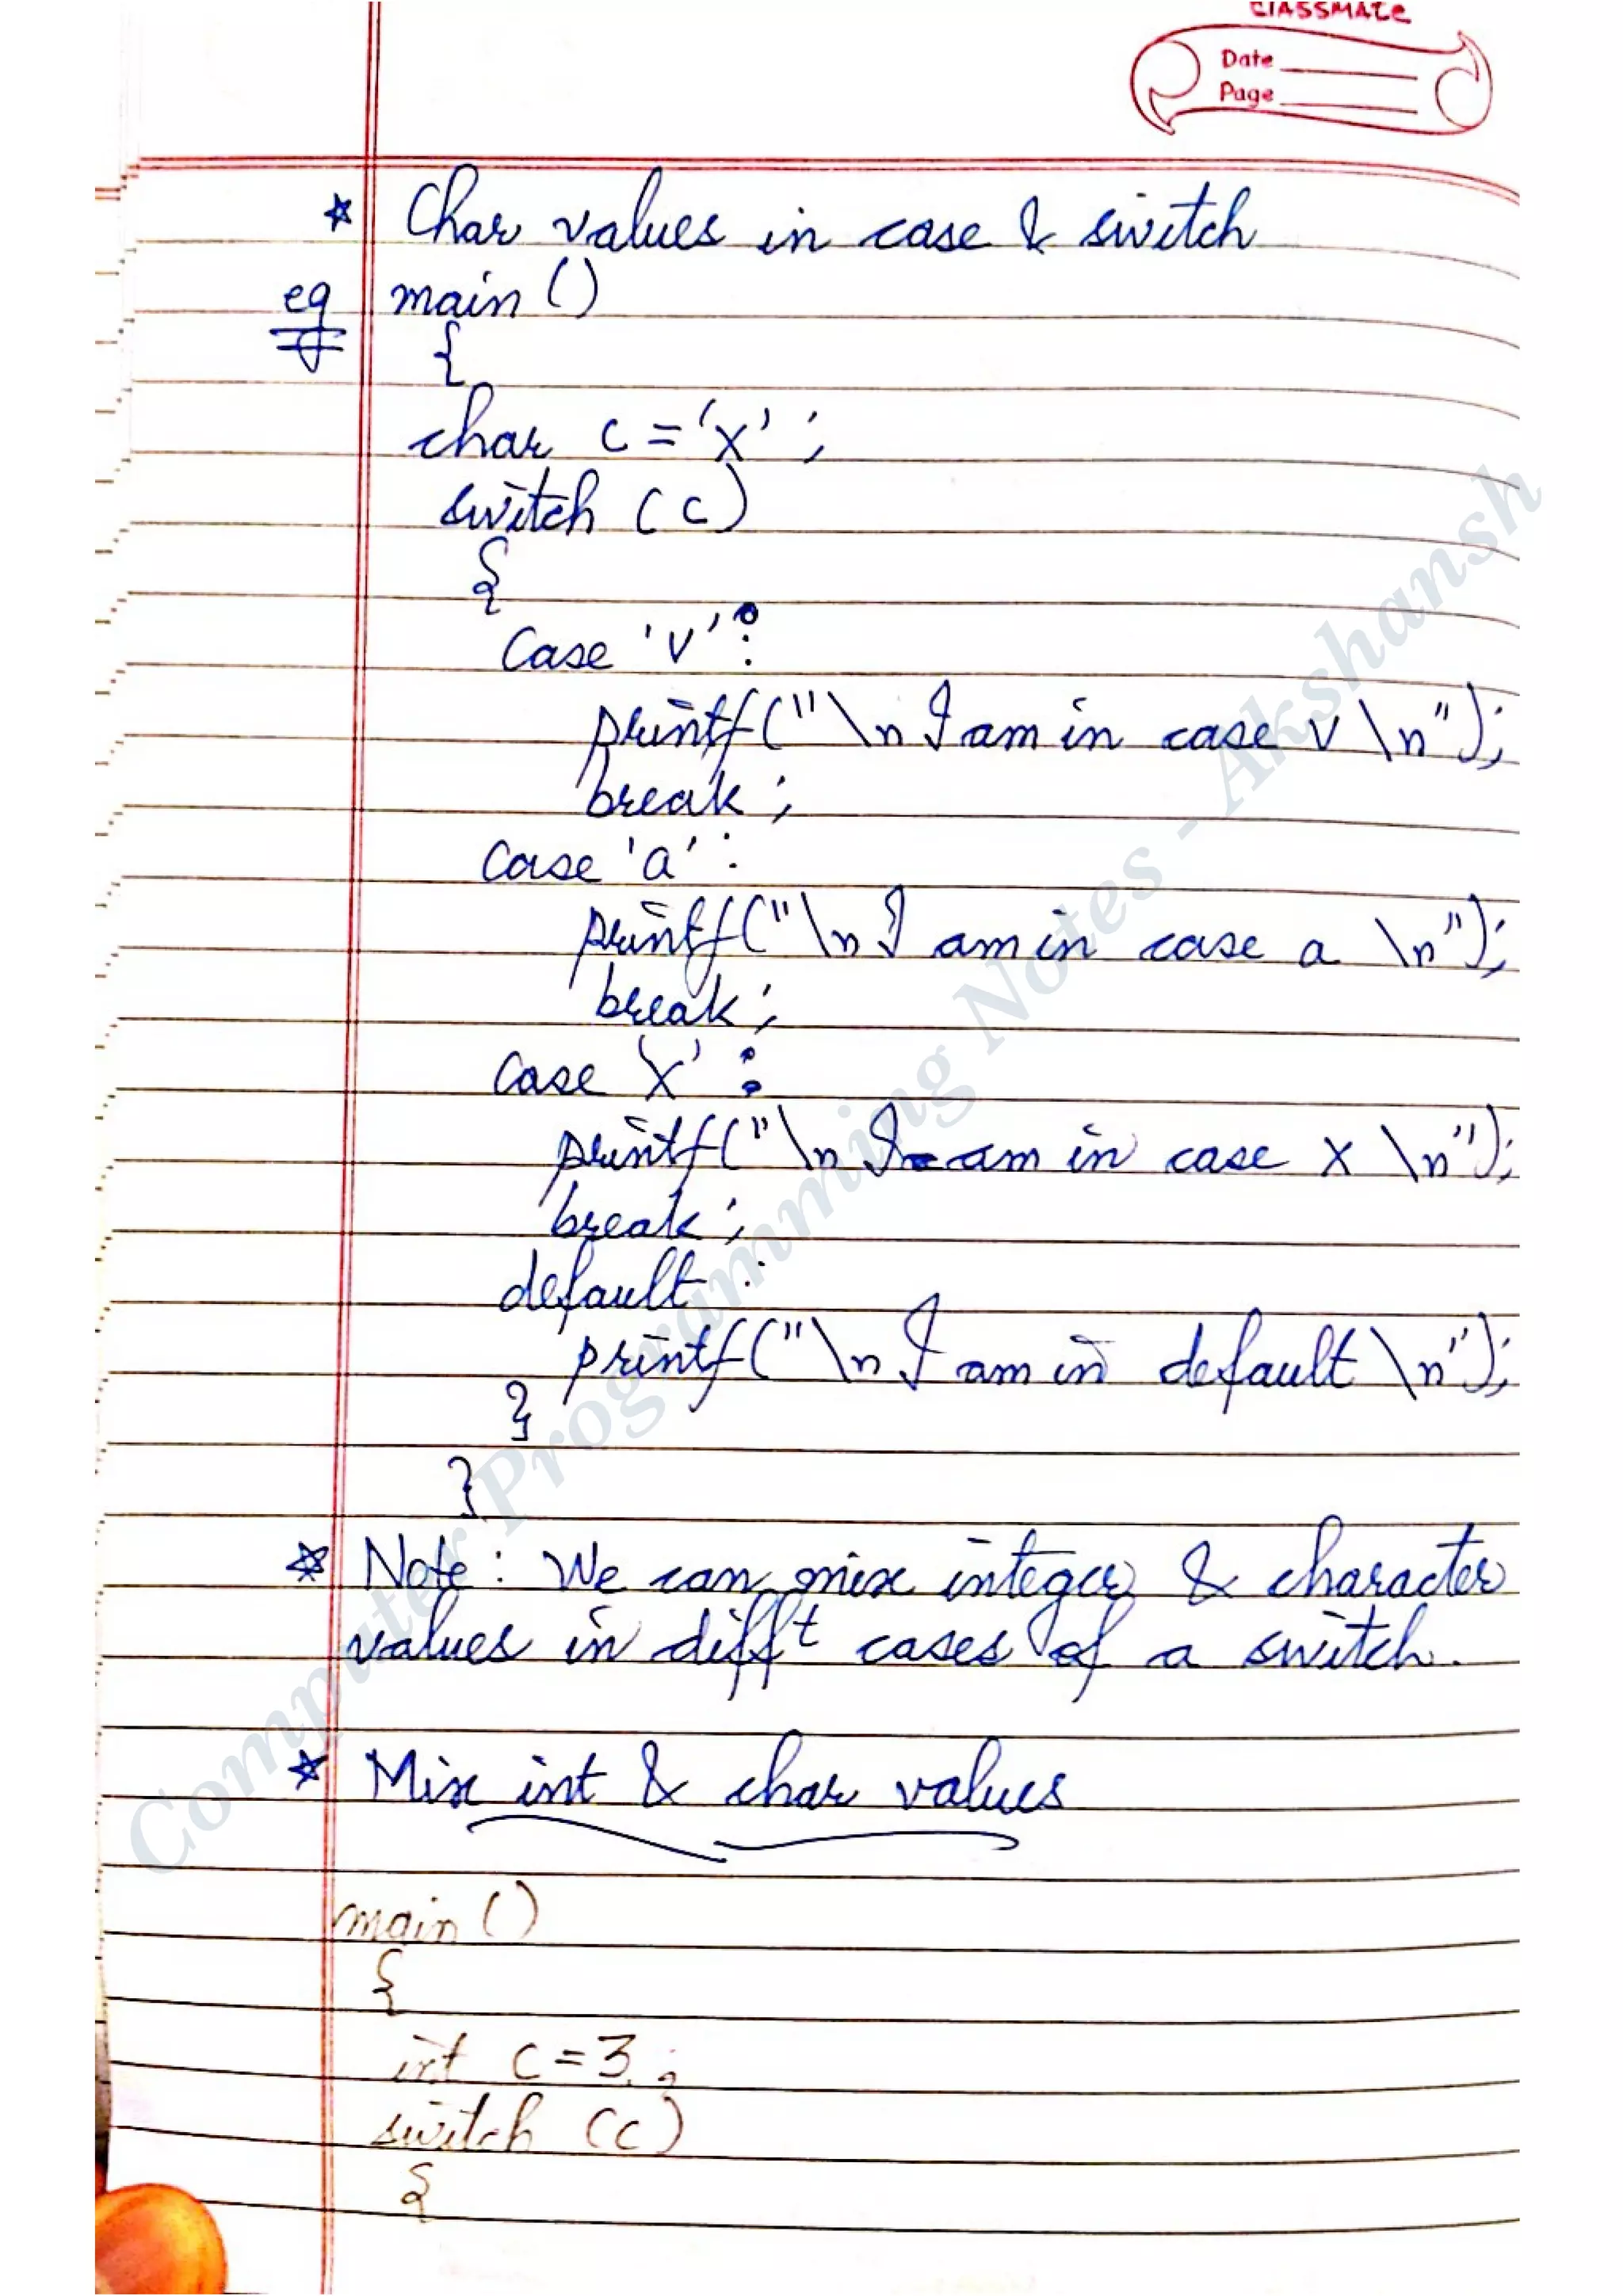 classmate
Date
Page
* Char values in case & switch
eg main ()
{
char c = 'x' ;
switch (c)
{
Case 'v' :
printf("\n I am in case v \n");
break ;
Case 'a' :
printf("\n I am in case a \n");
break ;
Case 'x' :
printf("\n I am in case x \n");
break ;
default :
printf("\n I am in default \n");
}
}
* Note : We can mix integer & character
values in difft cases of a switch.
* Mix int & char values
main ()
{
int c = 3 ;
switch (c)
{
Computer Programming Notes - Akshansh